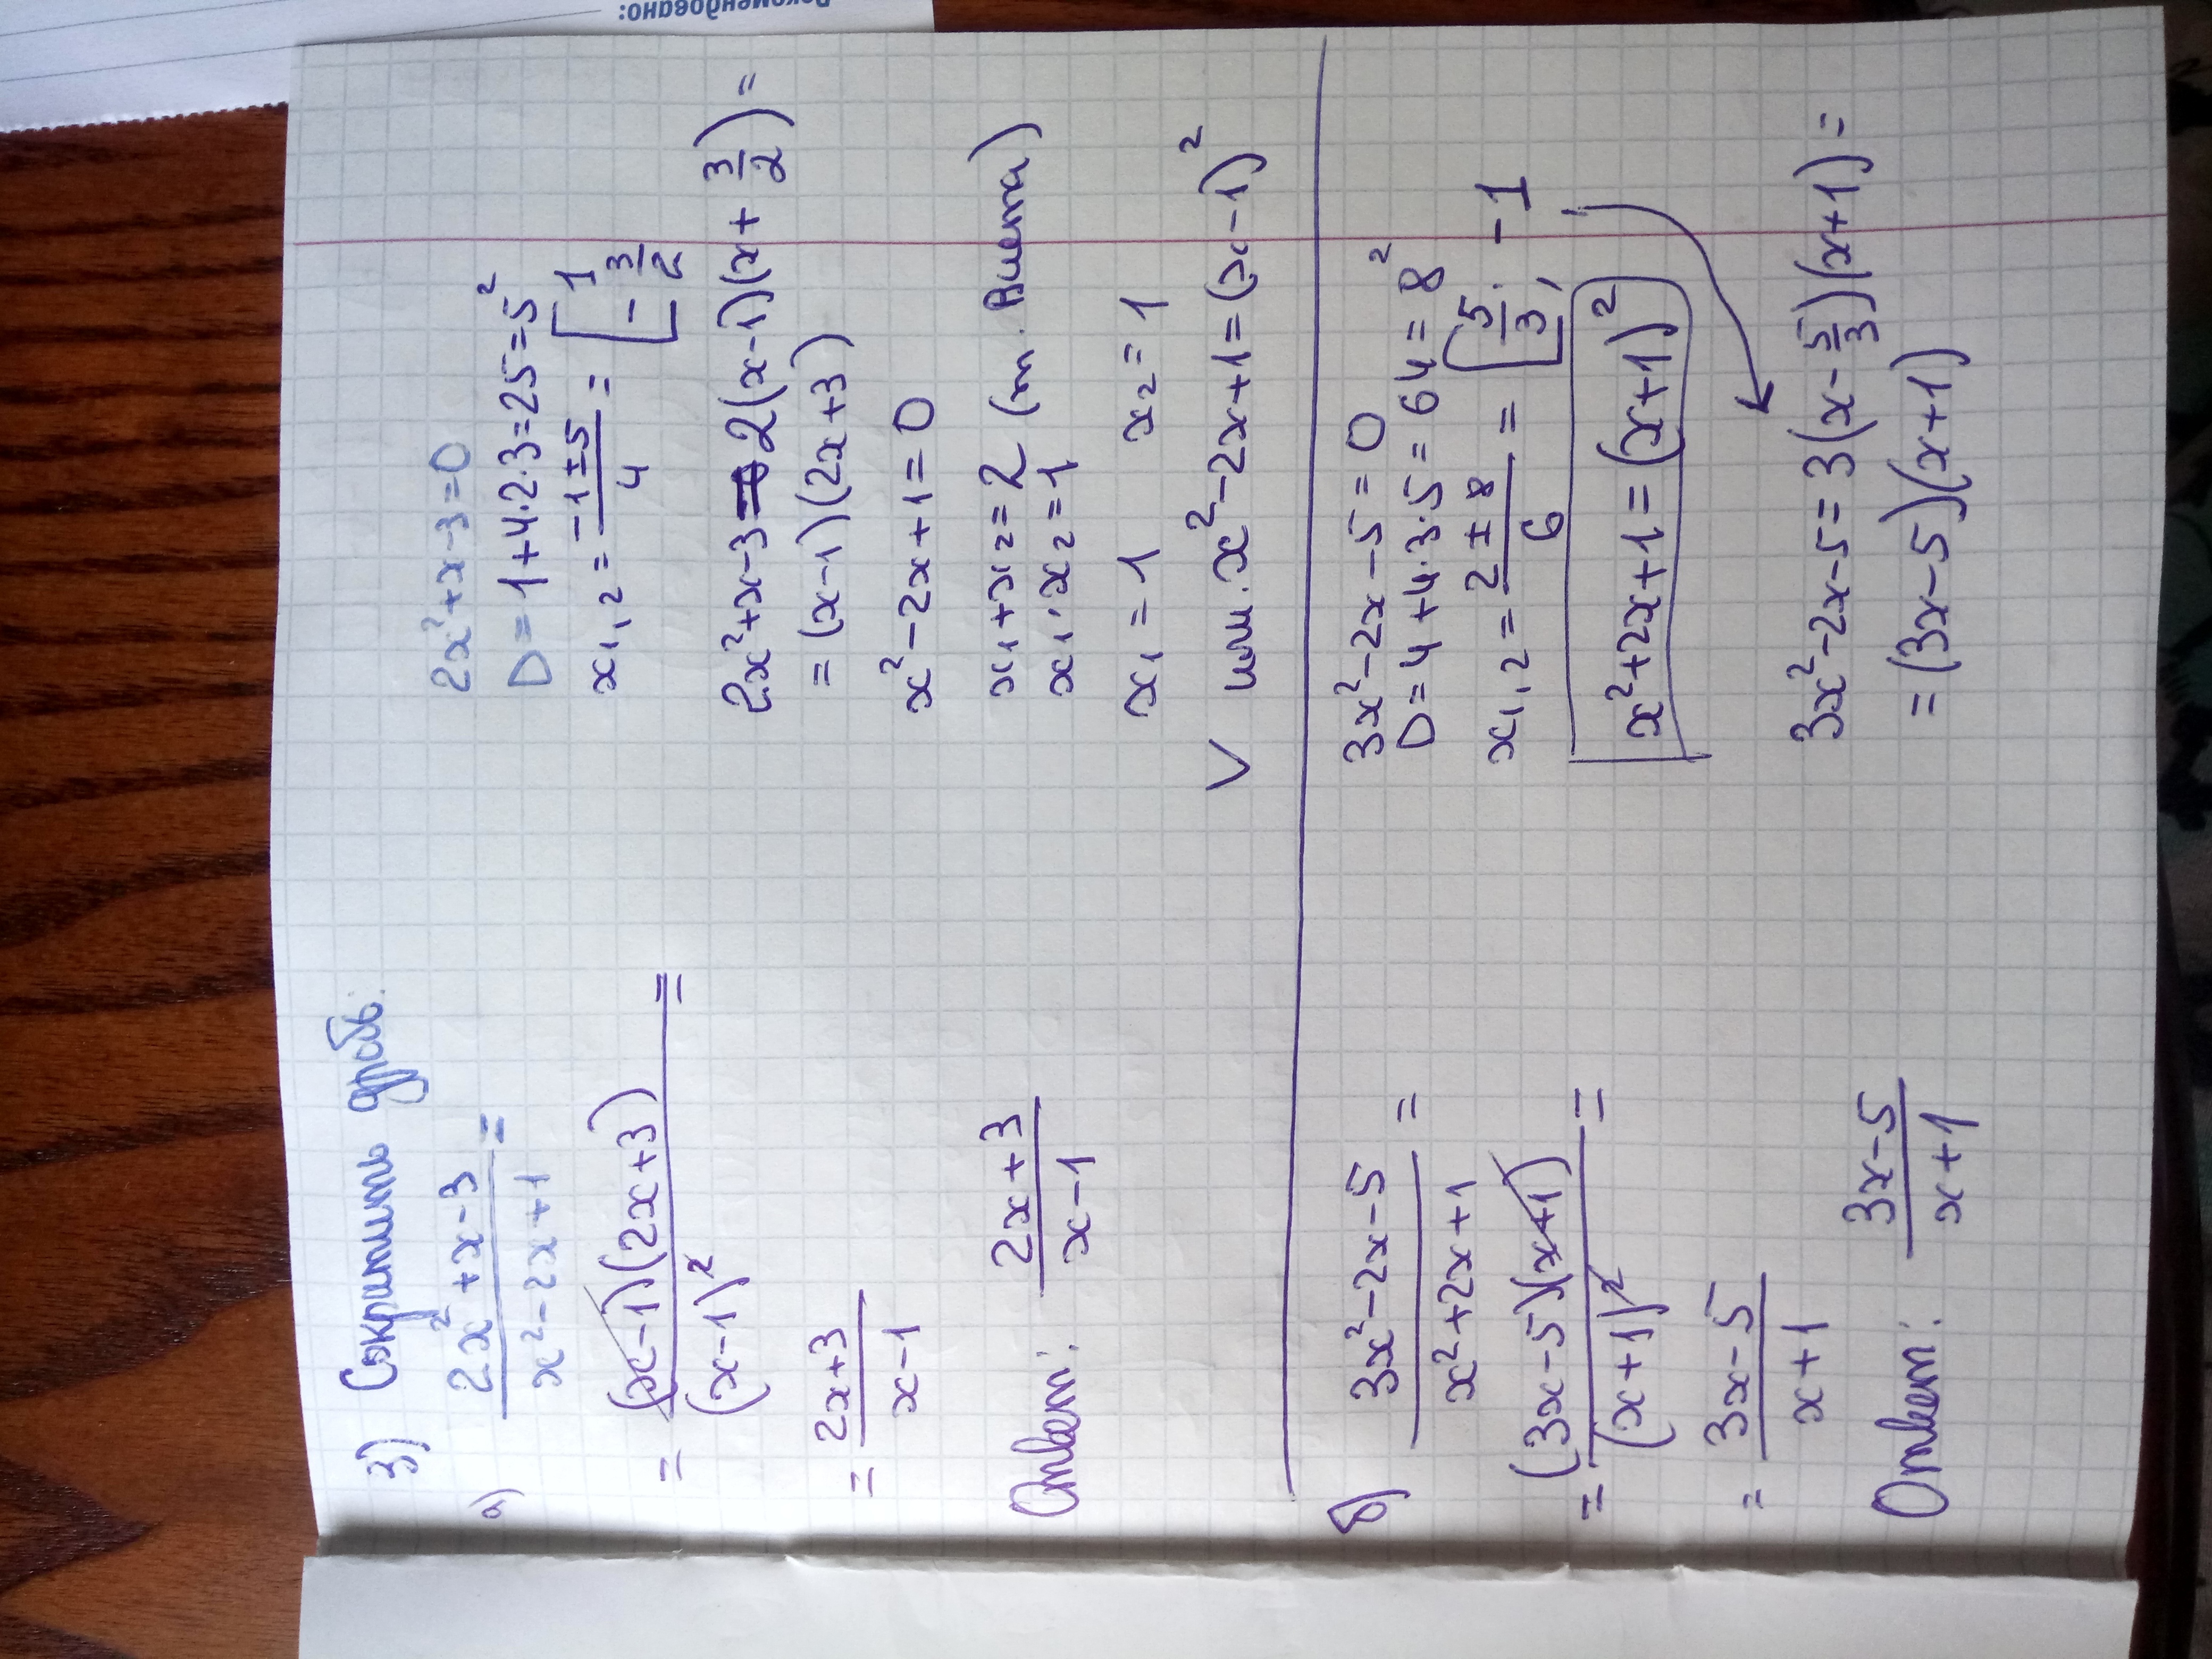 Рекомендовано:
3) Сократить дробь:
а) (2x²+x-3)/(x²-2x+1) =
= ((x-1)(2x+3))/(x-1)² =
= (2x+3)/(x-1)
Ответ: (2x+3)/(x-1)
2x²+x-3=0
D=1+4·2·3=25=5²
x₁,₂ = (-1±5)/4 = [1 -3/2
2x²+x-3=2(x-1)(x+3/2)=
=(x-1)(2x+3)
x²-2x+1=0
x₁+x₂=2 (т. Виета)
x₁·x₂=1
x₁=1 x₂=1
V или. x²-2x+1=(x-1)²
б) (3x²-2x-5)/(x²+2x+1) =
= ((3x-5)(x+1))/(x+1)² =
= (3x-5)/(x+1)
Ответ: (3x-5)/(x+1)
3x²-2x-5=0
D=4+4·3·5=64=8²
x₁,₂ = (2±8)/6 = [5/3; -1
x²+2x+1=(x+1)²
3x²-2x-5=3(x-5/3)(x+1)=
=(3x-5)(x+1)